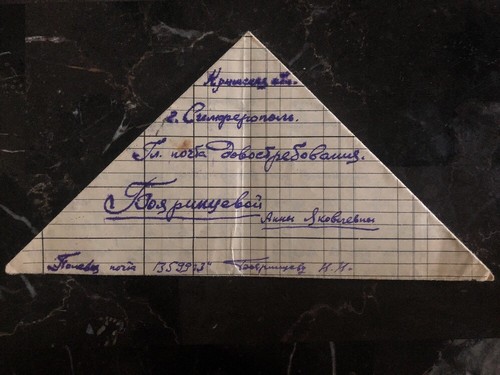 Крымская обл.
г. Симферополь.
Гл. почта Довостребования.
Бояринцевой
Анны Яковлевны
Полевая почта 13599 "З" Бояринцев Н.Н.